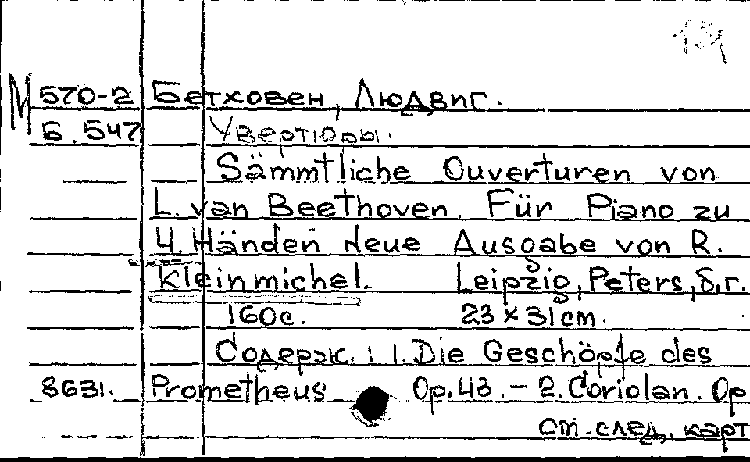 М 570-2 Бетховен, Людвиг.
Б. 547 Увертюры.
Sämmtliche Ouverturen von
L. van Beethoven. Für Piano zu
4. Händen Neue Ausgabe von R.
Kleinmichel. Leipzig, Peters, б.г.
160с. 23 × 31 cm.
Содерж.: 1. Die Geschöpfe des
8631. Prometheus Op. 43. – 2. Coriolan. Op
см. след. карт